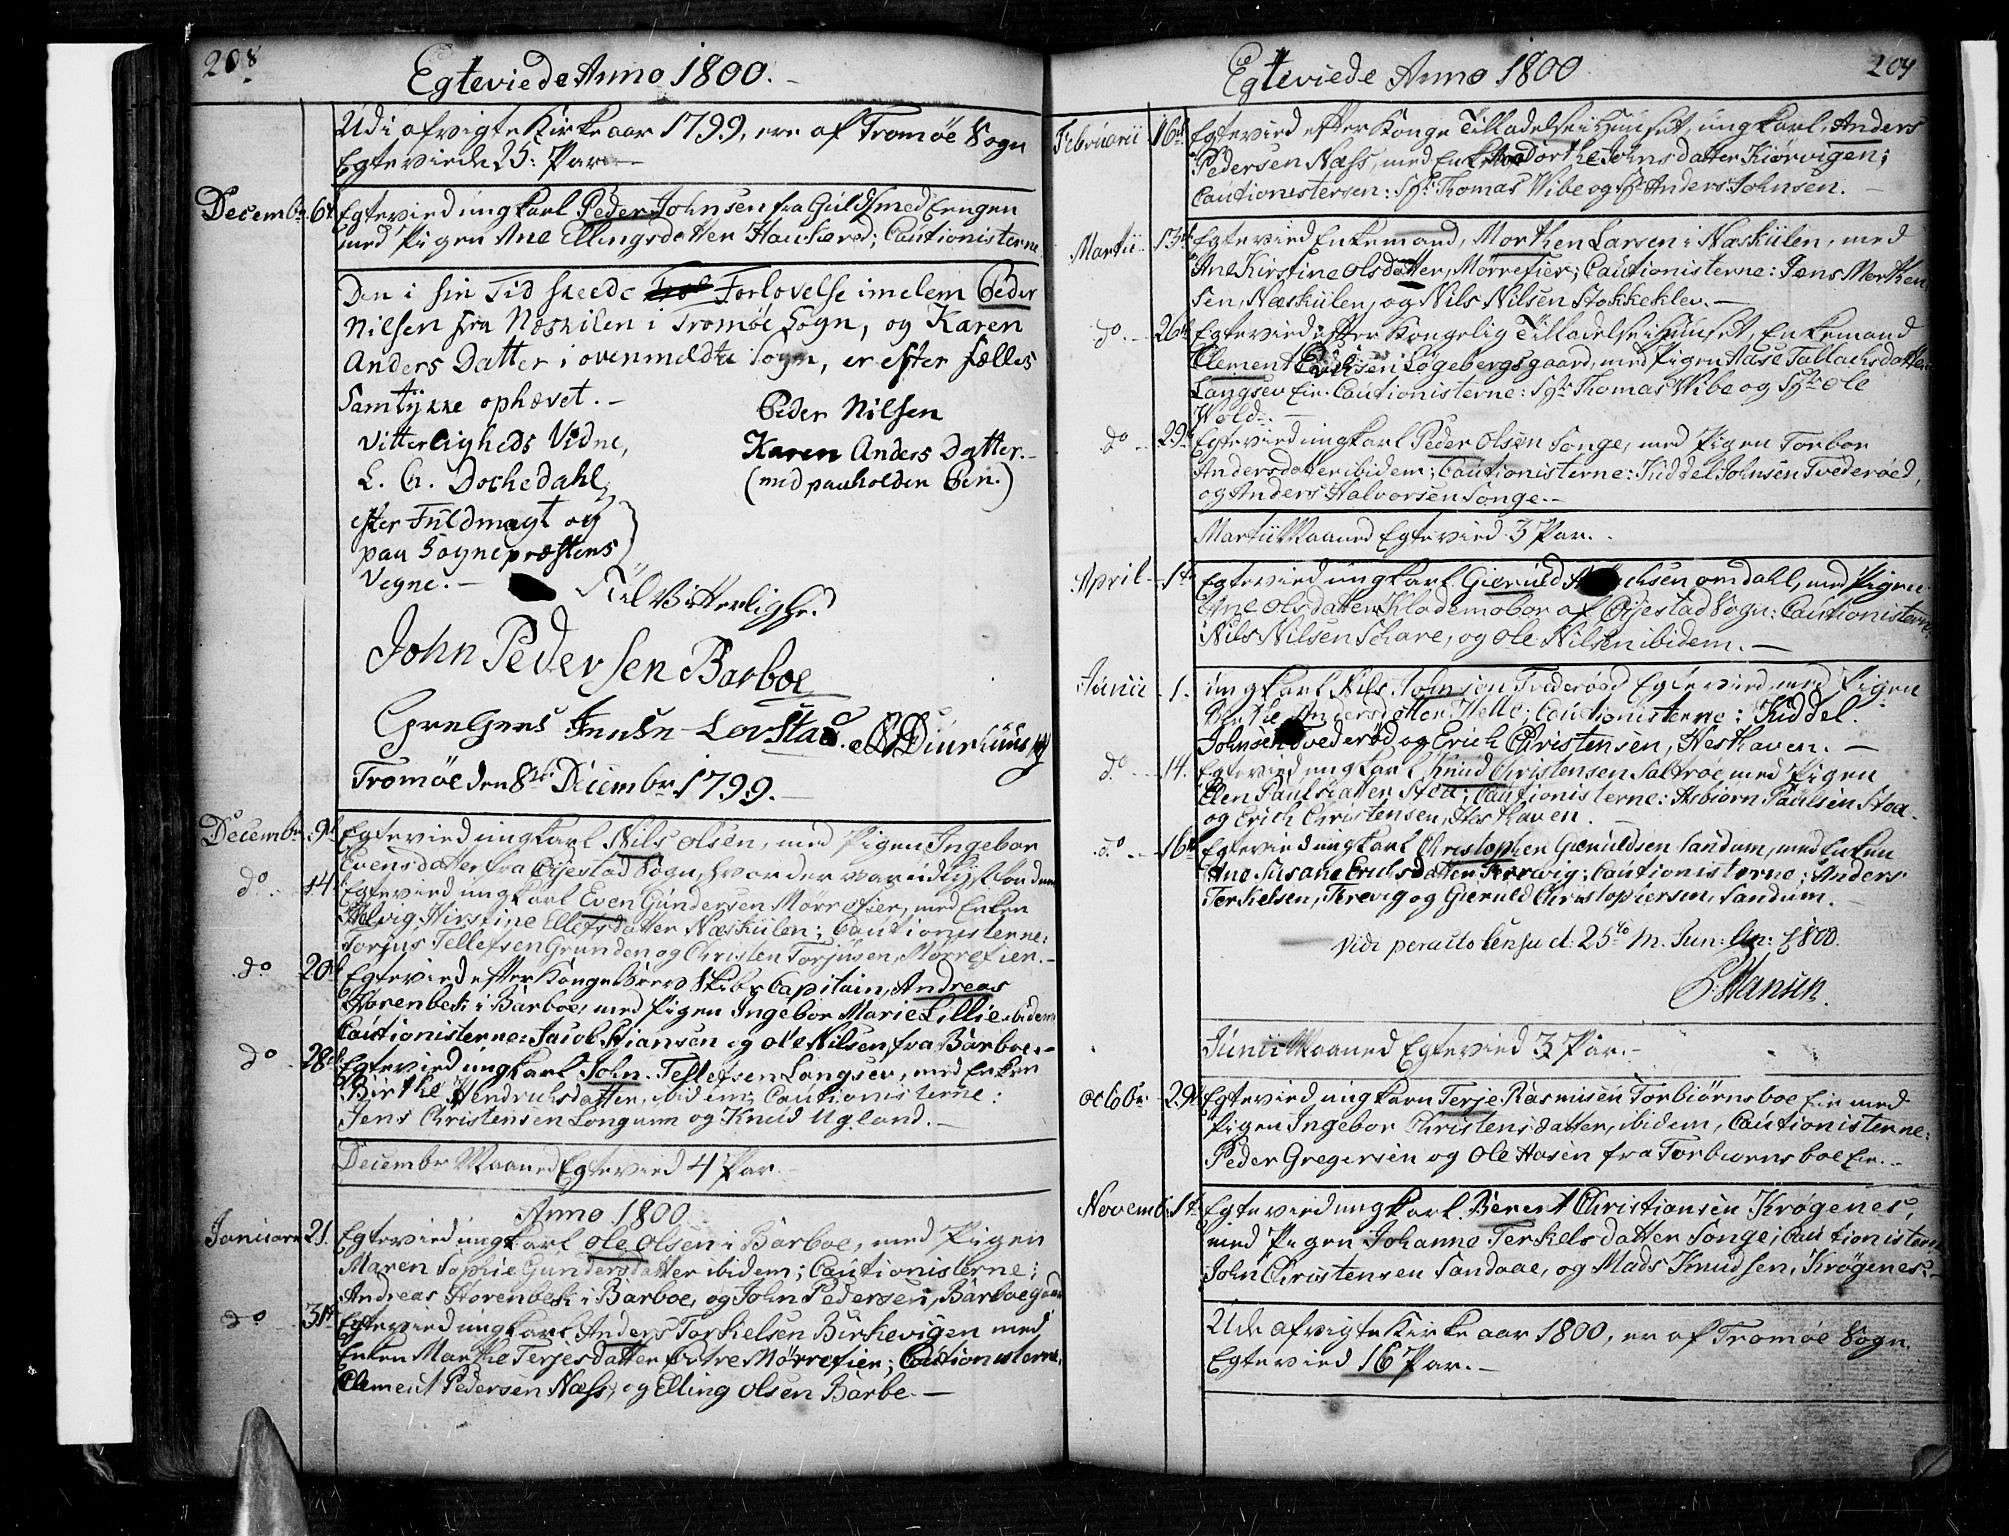 208
Egteviede Anno 1800.
Udi afvigte Kirke aar 1799, ere af Tromöe Sogn
Egteviede 25: Par
Decembr. 6t. Egtevied ungkarl Peder Johnsen fra Guldsmed Eengen
med Pigen Ane Ellingsdatter ; Cautionisterne
Den i sin Tid skeede Forlovelse imelem Peder
Nilsen fra Næskilen i Tromöe Sogn, og Karen
Anders Datter i ovenmeldte Sogn, er efter fælles
Samtykke ophævet.
Peder Nilsen
Vitterligheds Vidne,
Karen Anders Datter.
L. Dochedahl,
(med paaholden Pen.)
efter Fuldmagt og
paa Sognepræstens
Vegne.
Til Vitterlighed
John Pedersen Barboe
Gregers Jensen Lovstad
Tromöe den 8de Decembr 1799.
Decembr. 9t. Egtevied ungkarl Nils Olsen, med Pigen Ingebor
Evensdatter fra Öjestad Sogn, hvor der var udlyst for dem
do 14. Egtevied ungkarl Even Gundersen Mörrefier, med Enken
Kirstine Ellefsdatter Næskilen; Cautionisterne:
Torjus Tellefsen Grunden og Christen Torjusen, Mörrefier.
do 20de Egtevied efter Konge Brev Skibs Capitain, Andreas
Horenbek i Barboe, med Pigen Ingebor Marie Lillie ibidem
Cautionisterne: Jacob Stiansen og Ole Nilsen fra Barboe.
do 28de Egtevied ungkarl John Tellefsen Langsev, med Enken
Birthe Hendrichsdatter, ibidem; Cautionisterne:
Jens Christensen Longum og Knud Ugland.
Decembr Maaned Egtevied 4 Par.
Anno 1800
Januarii 21. Egtevied ungkarl Ole Olsen i Barboe, med Pigen
Maren Sophie Gundersdatter ibidem; Cautionisterne:
Andreas Horenbek i Barboe, og John Pedersen, Barboegaard
do 31t Egtevied ungkarl Anders Torkielsen Birkevigen med
Enken Marthe Terjesdatter Mörrefier; Cautionisterne,
Clement Pedersen Næss, og Elling Olsen Barbo.
Egteviede Anno 1800
209
Februarii 16de Egtevied efter Konge Tilladelse i Huuset, ungkarl, Anders
Pedersen Næss, med Enken Dorthe Johnsdatter Kiörvigen;
Cautionisterne: Sr. Thomas Wibe og Sr. Anders Johnsen.
Martii 13de Egtevied Enkemand, Morthen Larsen i Næskilen, med
Ane Kirstine Olsdatter, Mörrefier; Cautionisterne: Jens Morthen
sen, Næskilen, og Nils Nilsen Stokkeklev.
do 26de Egtevied efter Kongelig Tilladelse i Huuset, Enkemand
Clement Erichsen Lögebergsgaard, med Pigen Aase Tallachsdatter
Langsev Eie. Cautionisterne: Sr. Thomas Wibe og Sr. Ole
Wold.
do 29de Egtevied ungkarl Peder Olsen Songe, med Pigen Torbor
Andersdatter ibidem; Cautionisterne: Kiddel Johnsen Tvederöed,
og Anders Halvorsen Songe.
Martii Maaned Egtevied 3 Par.
April 1te Egtevied ungkarl Gieruld omdahl, med Pigen
Ane Olsdatter Klodemobor af Öjestad Sogn: Cautionisterne,
Nils Nilsen Schare, og Ole Nilsen ibidem.
Junii 1. ungkarl Nils Johnsen Tvederöed Egtevied med Pigen
Birthe Andersdatter Helle; Cautionisterne: Kiddel
Johnsen Tvederöd og Erich Christensen, Heshaven.
do 14. Egtevied ungkarl Knud Christensen Saltröe, med Pigen
Elen Paulsdatter Stoa; Cautionisterne: Asbiorn Paulsen Stoa
og Erich Christensen, Heshaven.
do 16de Egtevied ungkarl Christopher Gieruldsen Sandum, med Enken
Ane Susane Erichsdatter Terrevig; Cautionisterne: Anders
Terkelsen, Terevig og Gieruld Christophersen, Sandum.
Vidi peracto censu d: 25to M. Jun: An: 1800.
Hansen.
Junii Maaned Egtevied 3 Par.
Octobr 29de Egtevied ungkarn Terje Rasmusen Torbiörnsboe Eie med
Pigen Ingebor Christensdatter, ibidem, Cautionisterne:
Peder Gregersen og Ole Hasen fra Torbiornsboe Eie.
Novemb. 1te Egtevied ungkarl Berent Christiansen Krögenes,
med Pigen Johanne Terkelsdatter Songe; Cautionisterne
John Christensen Sandaae, og Mads Knudsen, Krögenes.
Udi afvigte Kirke aar 1800, er af Tromöe Sogn.
Egtevied 16 Par.